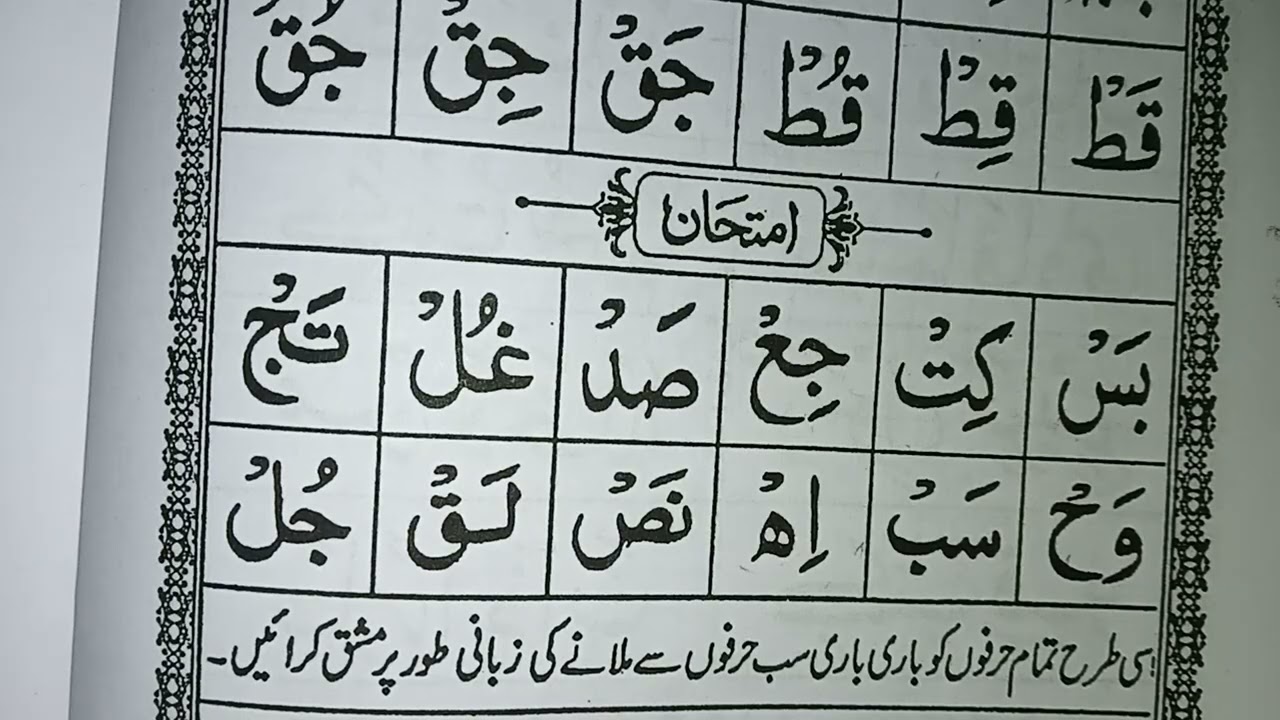 قَطْ قِطْ قُطْ جَقْ جِقْ جُقْ
امتحان
بَسْ كِتْ جِعْ صَدْ غُلْ تَجْ
وَحْ سَبْ اِهْ نَصْ لَقْ جُلْ
اسی طرح تمام حرفوں کو باری باری سب حرفوں سے ملانے کی زبانی طور پر مشق کرائیں۔